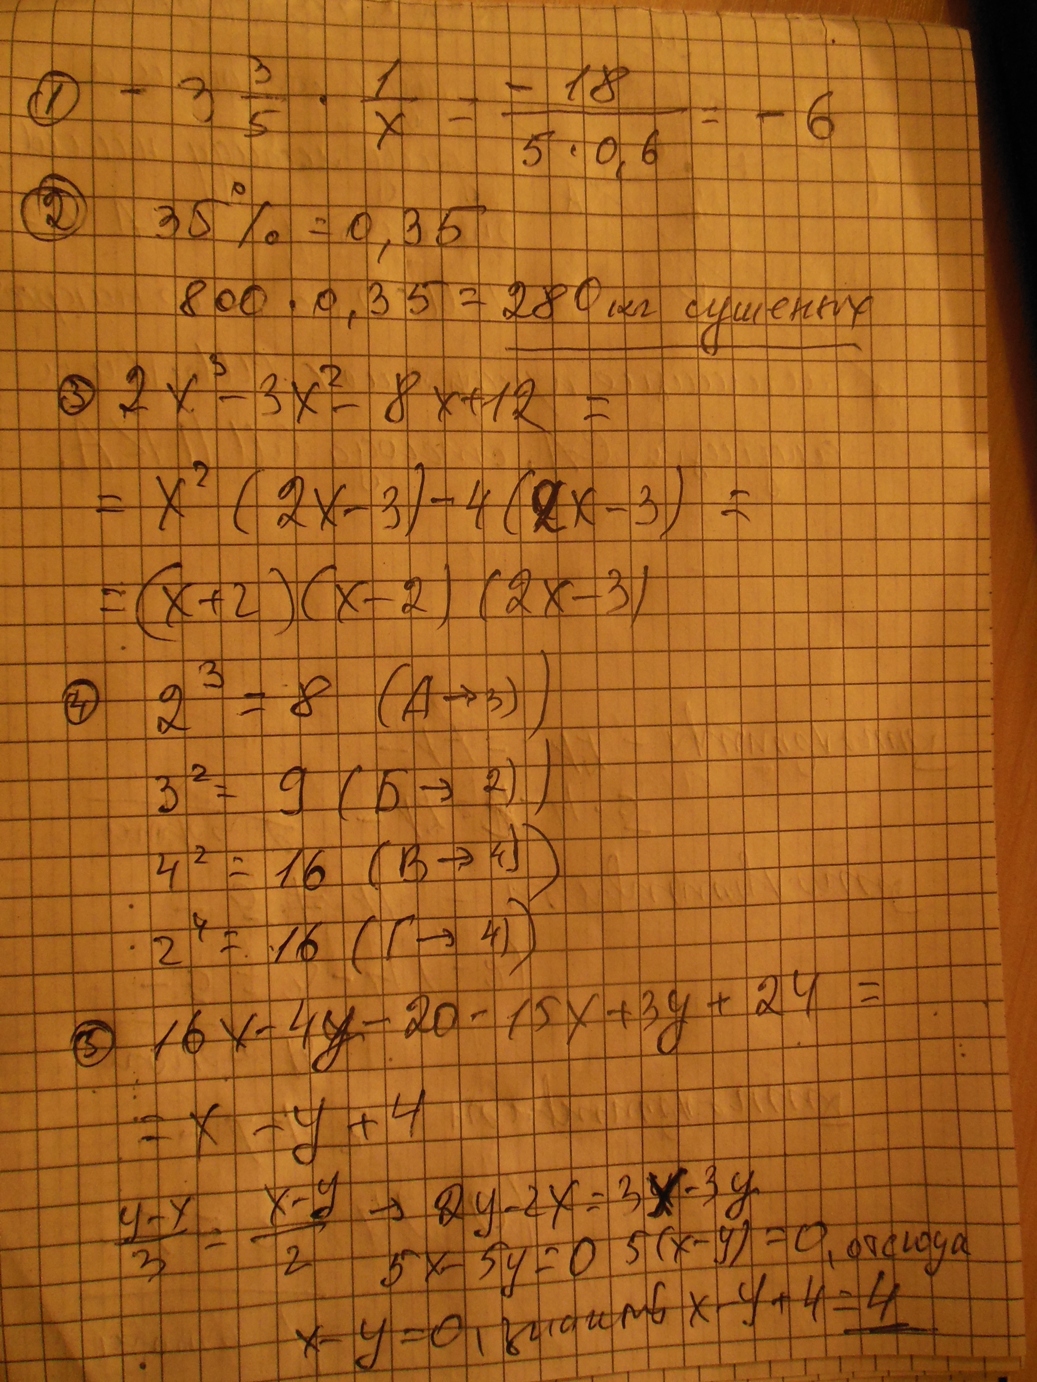 ① - 3 3/5 · 1/x = -18/(5·0,6) = -6
② 35% = 0,35
800·0,35 = 280 кг сушенных
③ 2x³ - 3x² - 8x + 12 =
= x² (2x - 3) - 4 (2x - 3) =
= (x+2)(x-2) (2x-3)
④ 2³ = 8 (А → 3))
3² = 9 (Б → 2))
4² = 16 (В → 4))
2⁴ = 16 (Г → 4))
⑤ 16x - 4y - 20 - 15x + 3y + 24 =
= x - y + 4
(y-x)/3 = (x-y)/2 → 2y - 2x = 3x - 3y
5x - 5y = 0 5(x-y) = 0, отсюда
x - y = 0, значить x - y + 4 = 4